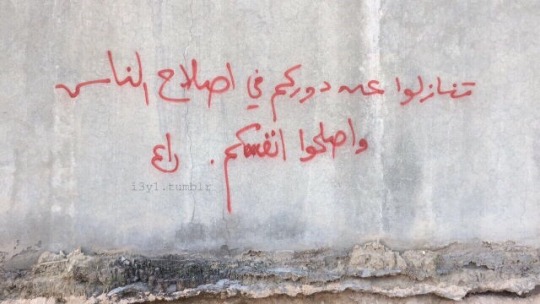 تنازلوا عن دوركم في اصلاح الناس
واصلحوا انفسكم . راع
i3y1.tumblr